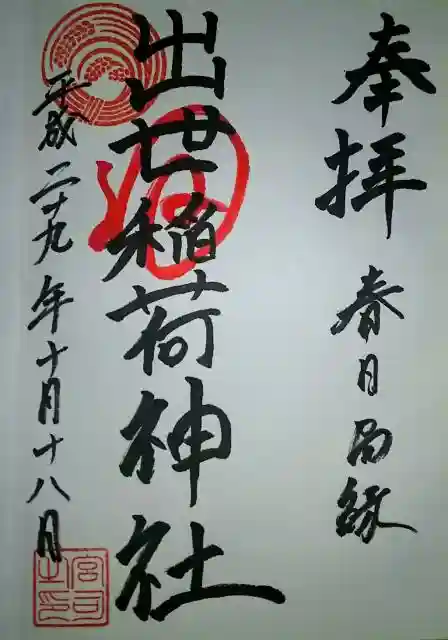 奉拝 春日局縁
出世稲荷神社
平成二十九年十月十八日
宮司
之印